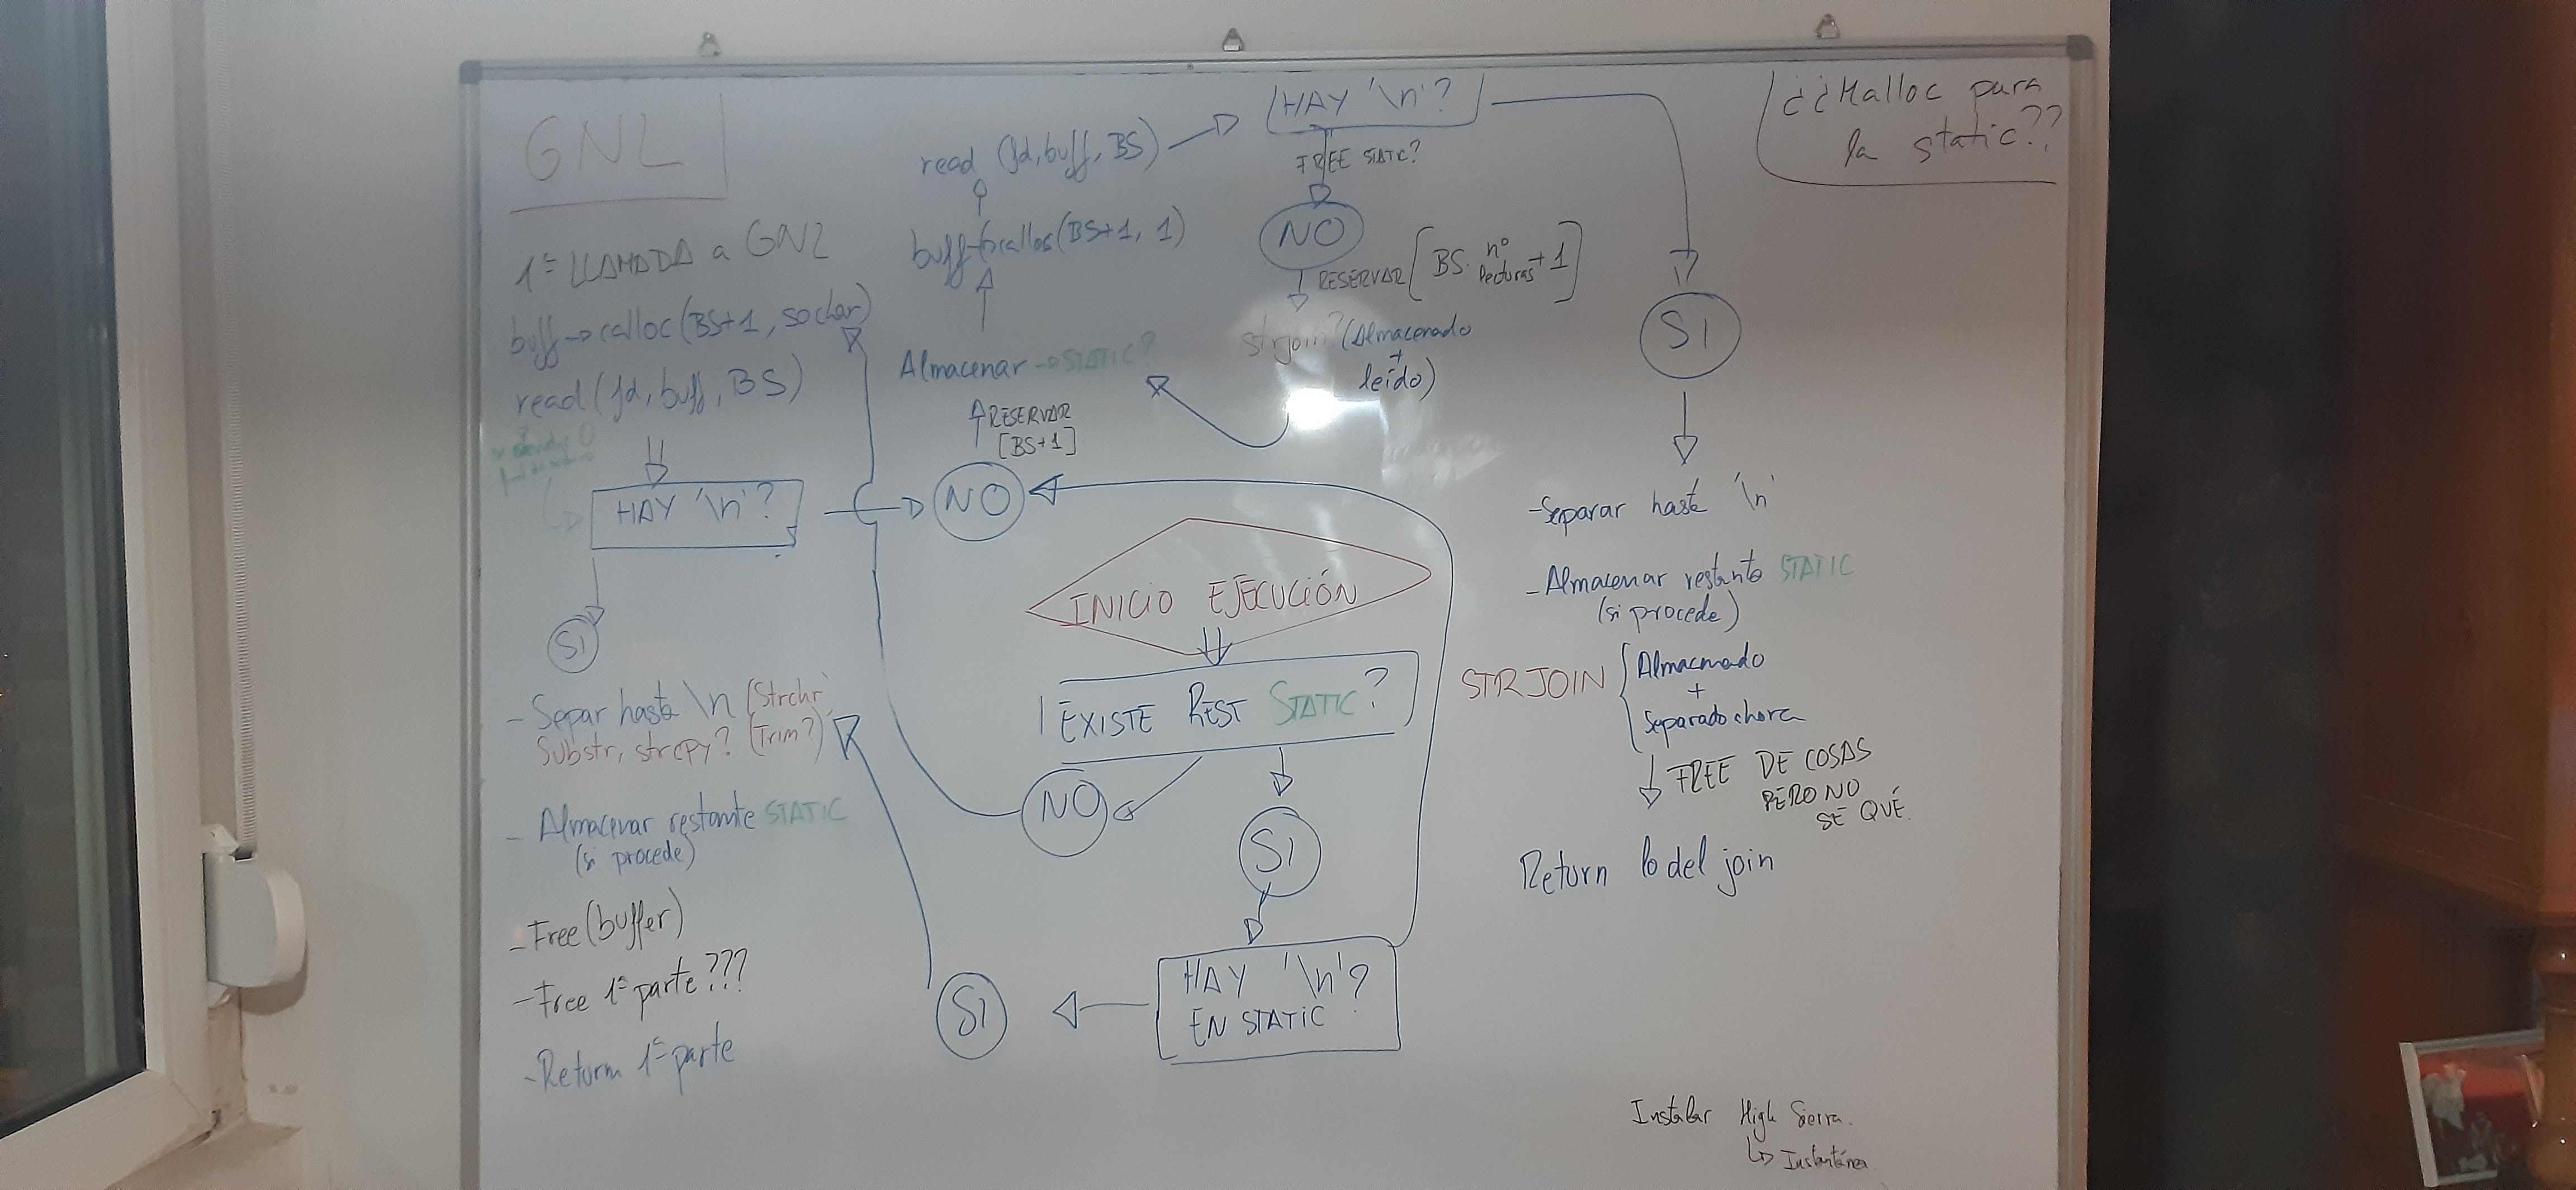 GNL
1ª LLAMADA a GNL
buff→calloc(BS+1, so char)
read(fd, buff, BS)
HAY '\n'?
SI
- Separ hasta \n (Strchr,
Substr, strcpy? (Trim?)
- Almacenar restante STATIC
(si procede)
- Free(buffer)
- Free 1ª parte???
- Return 1ª parte
read (fd, buff, BS)
buff→calloc(BS+1, 1)
Almacenar → STATIC?
RESERVAR
[BS+1]
NO
HAY '\n'?
FREE STATIC?
NO
RESERVAR [BS· nº lecturas +1]
strjoin? (Almacenado
+
leído)
INICIO EJECUCIÓN
EXISTE REST STATIC?
NO
SI
HAY '\n'?
EN STATIC
SI
¿¿Malloc para
la static??
SI
- Separar hasta '\n'
- Almacenar restante STATIC
(si procede)
STRJOIN
Almacenado
+
Separado ahora
FREE DE COSAS
PERO NO
SÉ QUÉ.
Return lo del join
Instalar High Sierra.
Instantánea